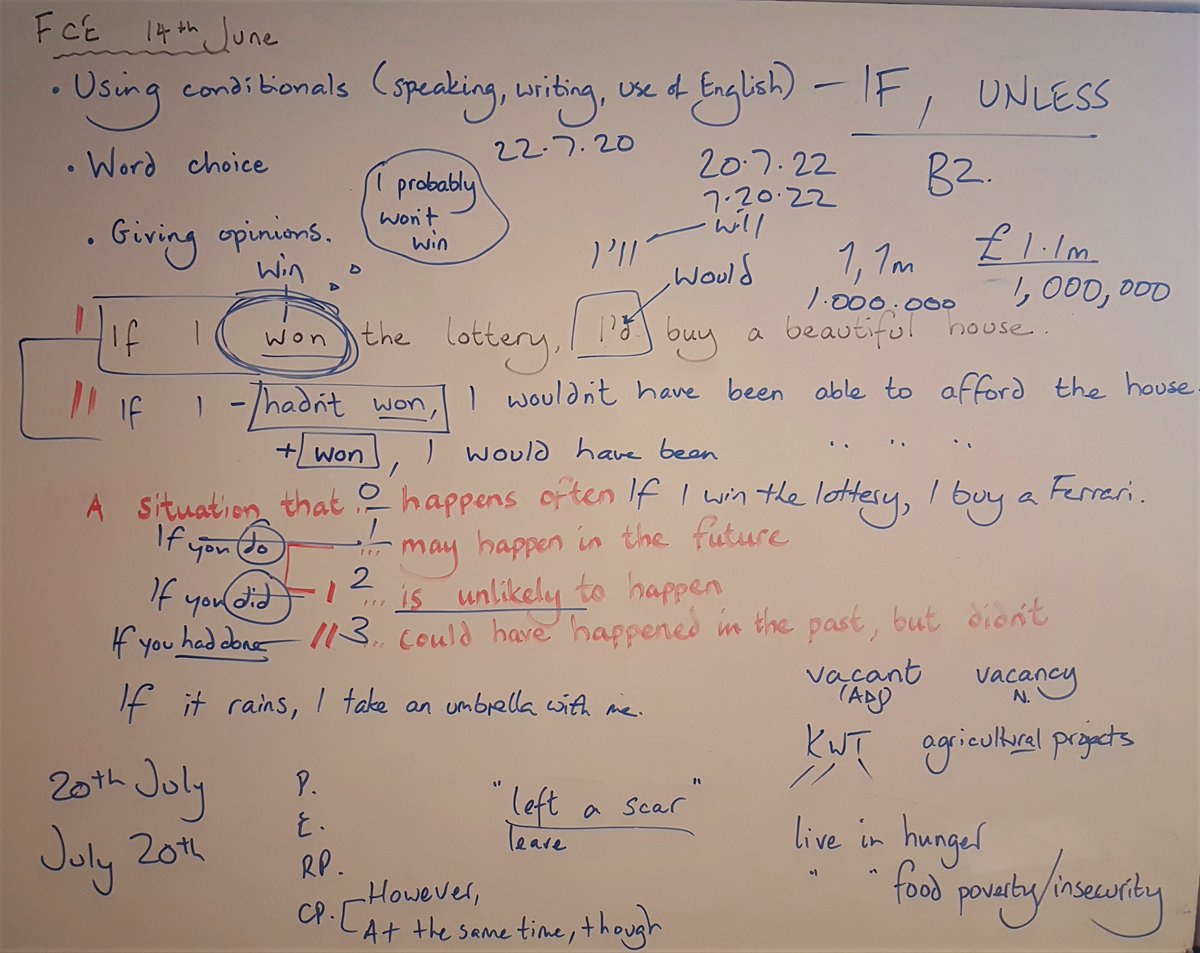 FCE 14th June
• Using conditionals (speaking, writing, use of English) – IF, UNLESS
• Word choice
22.7.20
20.7.22
7.20.22
B2.
I probably
won't
win
• Giving opinions.
I'll
will
would
1,1m
1.000.000
£1.1m
1,000,000
win
I If I won the lottery, I'd buy a beautiful house.
II If I - hadn't won, I wouldn't have been able to afford the house.
+ won, I would have been " " "
A situation that 0 happens often If I win the lottery, I buy a Ferrari.
If you do 1 ... may happen in the future
If you did I 2 ... is unlikely to happen
If you had done II 3.. could have happened in the past, but didn't
If it rains, I take an umbrella with me.
vacant vacancy
(ADJ) N.
KWT agricultural projects
20th July
July 20th
P.
E.
RP.
CP. However,
At the same time, though
"left a scar"
leave
live in hunger
" " food poverty/insecurity